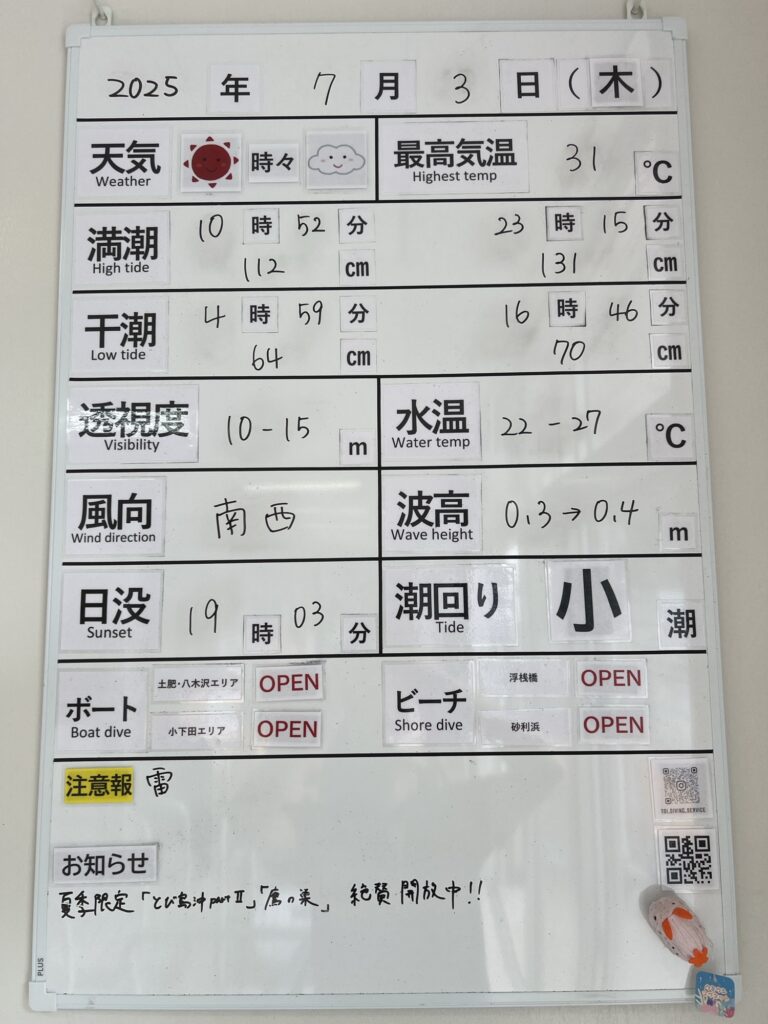 2025 年 7 月 3 日 (木)
天気 時々
Weather
最高気温 31 ℃
Highest temp
満潮 10 時 52 分 23 時 15 分
High tide 112 cm 131 cm
干潮 4 時 59 分 16 時 46 分
Low tide 64 cm 70 cm
透視度 10-15 m
Visibility
水温 22-27 ℃
Water temp
風向 南西
Wind direction
波高 0.3→0.4 m
Wave height
日没 19 時 03 分
Sunset
潮回り 小 潮
Tide
ボート 土肥・八木沢エリア OPEN
Boat dive 小下田エリア OPEN
ビーチ 浮桟橋 OPEN
Shore dive 砂利浜 OPEN
注意報 雷
TOI_DIVING_SERVICE
お知らせ
夏季限定「とび島沖partⅡ」「鷹の巣」 絶賛開放中!!
PLUS